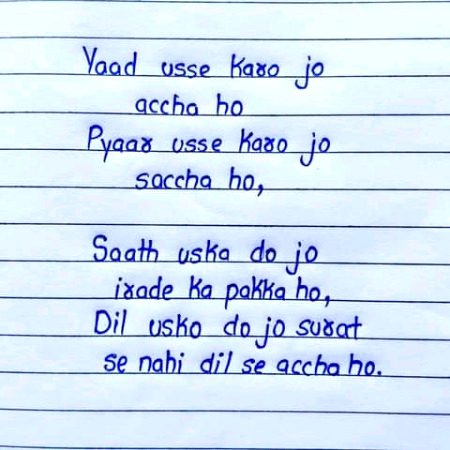 Yaad usse Karo jo
accha ho
Pyaar usse Karo jo
saccha ho,
Saath uska do jo
irade Ka pakka ho,
Dil usko do jo surat
se nahi dil se accha ho.